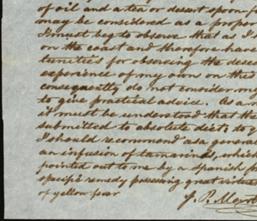 of oil and
may be considered as a proper
I must beg to observe that as I
on the coast and therefore have
tunities for observing the
experience of my own on this
consequently do not consider my
to give practical advice. As a
it must be understood that the
submitted to absolute diet; to
I should recommend as a general
an infusion of tamarind, which
pointed out to me by a Spanish
specific remedy possessing great virtues
of yellow fever